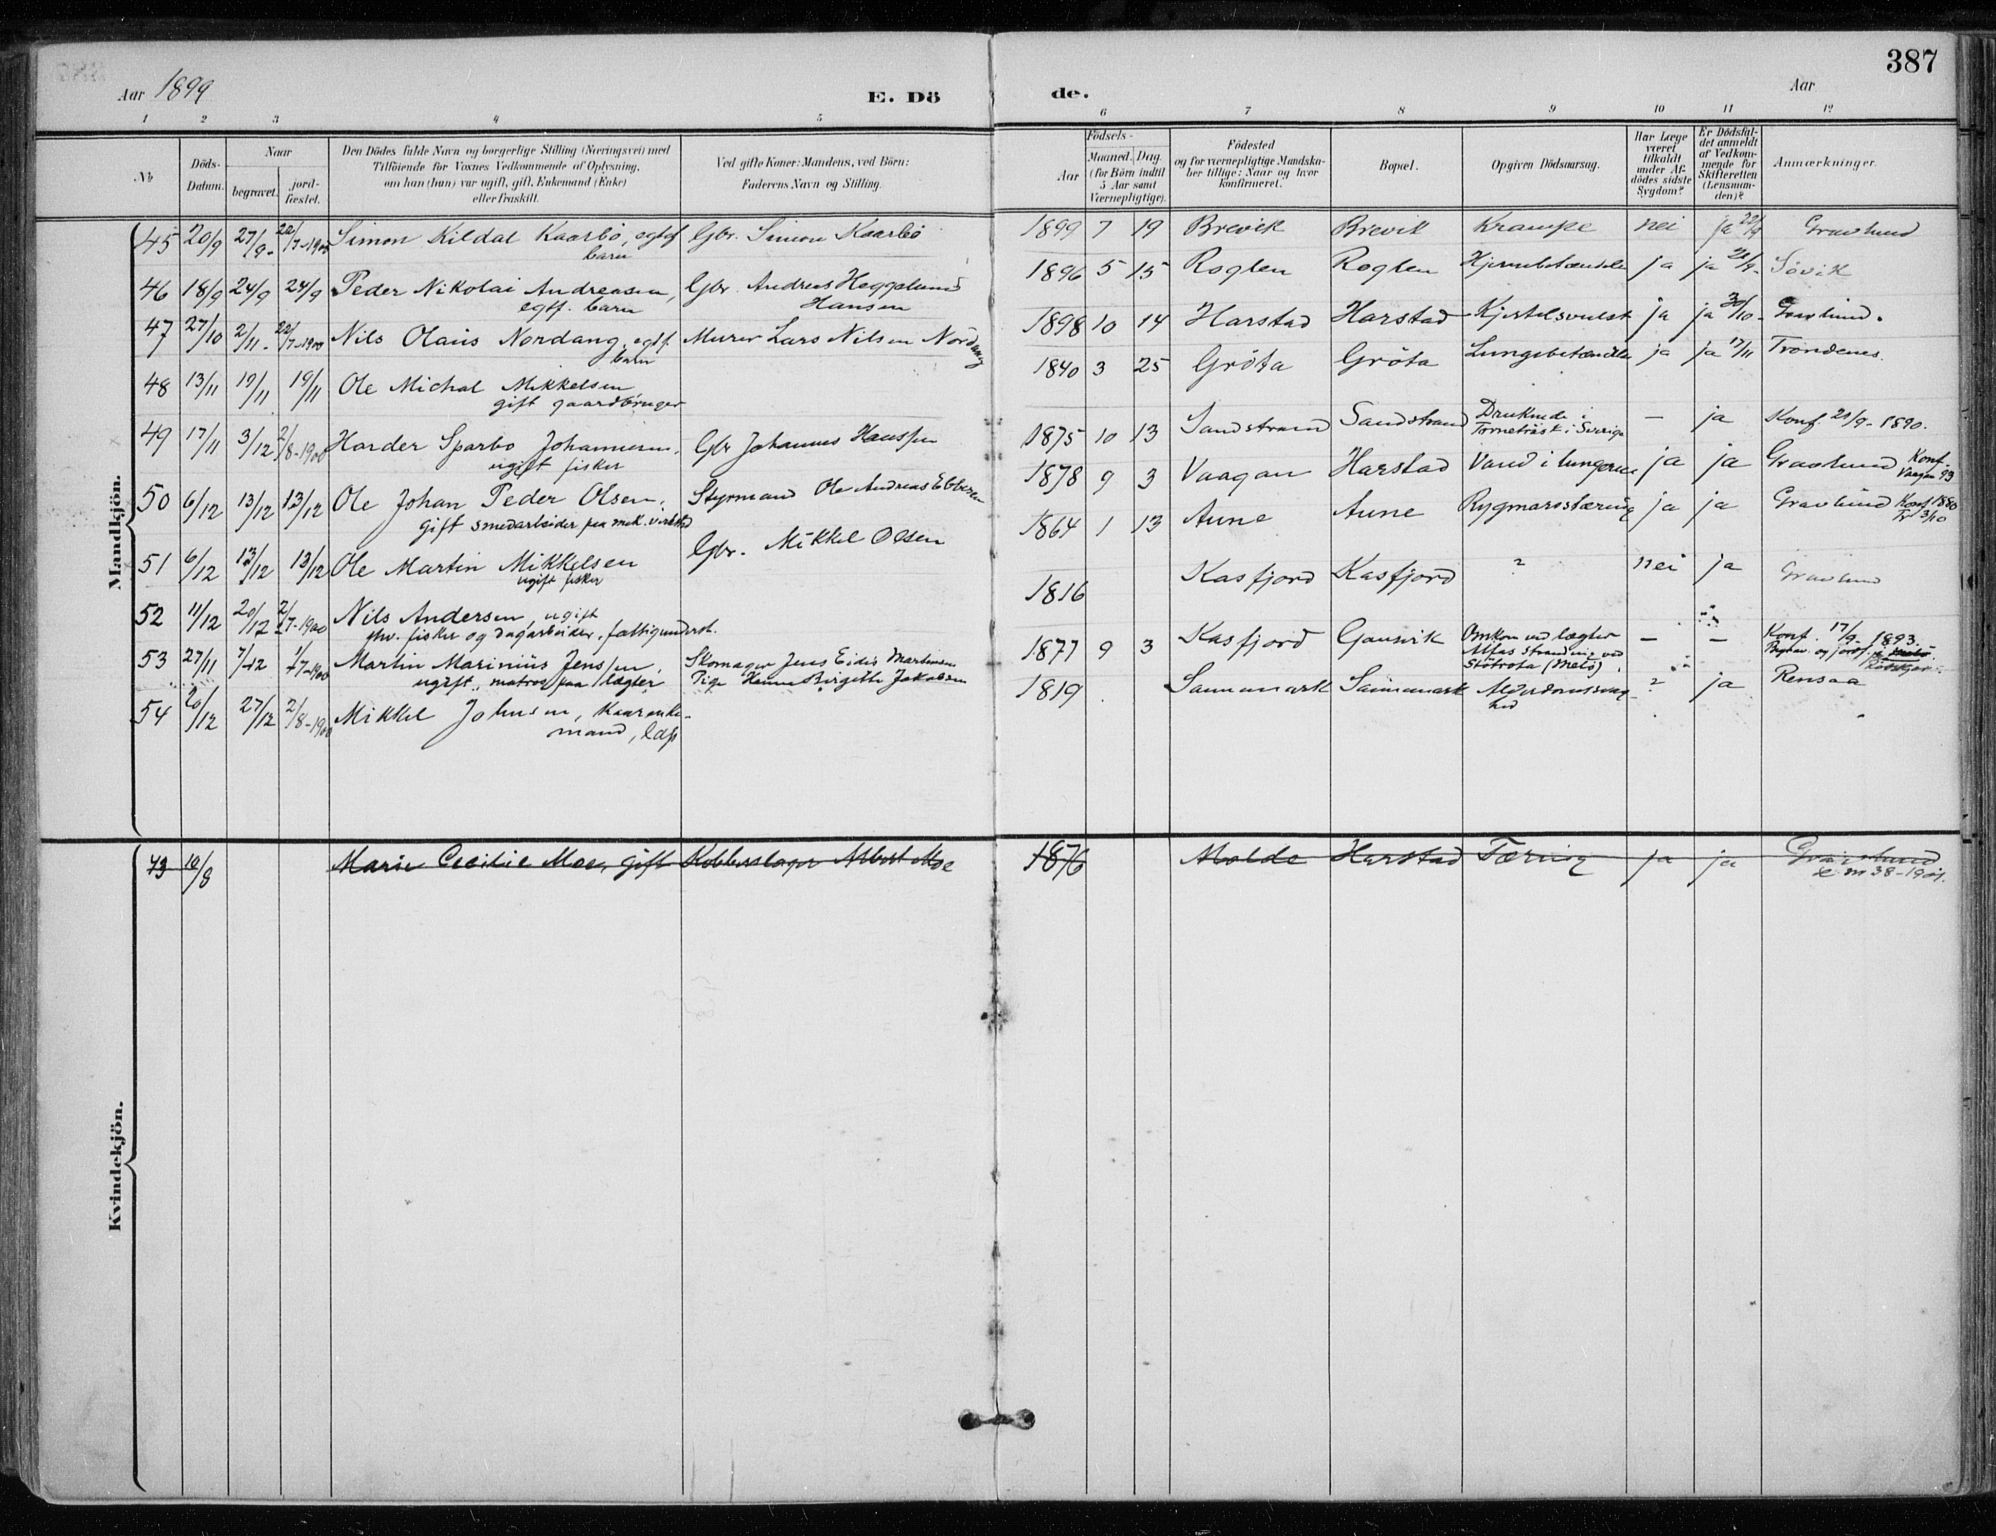 387
Aar 1899
E. Dö
de.
Aar
1 2 3 4 5 6 7 8 9 10 11 12
No
Döds-Datum.
Naar
begravet.
jord-fæstet.
Den Dödes fulde Navn og borgerlige Stilling (Næringsvei) med
Tilföiende for Voxnes Vedkommende af Oplysning,
om han (hun) var ugift, gift, Enkemand (Enke)
eller fraskilt.
Ved gifte Koner: Mandens, ved Börn:
Faderens Navn og Stilling.
Födsels-
Aar
Maaned. Dag.
(for Börn indtil
5 Aar samt
Værnepligtige).
Födested
og for værnepligtige Mandska-
ber tillige: Naar og hvor
konfirmeret.
Bopæl.
Opgiven Dödsaarsag.
Har Læge
været
tilkaldt
under Af-
dödes sidste
Sygdom?
Er Dödsfal-
det anmeldt
af Vedkom-
mende for
Skifteretten
(Lensman-
den)?
Anmærkninger.
Mandkjön.
45 20/9 27/9 - 22/7-1900 Simon Kildal Kaarbö, egtef. Gbr. Simon Kaarbö 1899 7 19 Brevik Brevik Krampe nei ja 22/9 Gravlund
barn
46 18/9 24/9 24/9 Peder Nikolai Andreasen, Gbr. Andreas Heggelund 1896 5 15 Roglen Roglen Hjernebetændelse ja ja 21/9- Sövik
egtf. barn Hansen
47 27/10 2/11- 22/7-1900 Nils Olaus Nordang, egtf. Murer Lars Nilsen Nordang 1898 10 14 Harstad Harstad Kjertelsvulst ja ja 30/10- Gravlund.
barn
48 13/11 19/11 19/11 Ole Michal Mikkelsen 1840 3 25 Gröta Gröta Lungebetændelse ja ja 17/11 Trondenes.
gift gaardbruger
49 17/11 3/12 2/8-1900 Harder Sparbo Johannesen. Gbr Johannes Hanssen 1875 10 13 Sandstrand Sandstrand Druknede i — ja Konf. 21/9-1890.
ugift fisker Torneträsk i Sverige
50 6/12 13/12 13/12 Ole Johan Peder Olsen, Styrmand Ole Andreas Ebbesen 1878 9 3 Vaagan Harstad Vand i lungerne ja ja Gravlund Konf. Vaagan 93
gift smedarbeider paa mek. verksted
51 6/12 13/12 13/12 Ole Martin Mikkelsen Gbr. Mikkel Olsen 1864 1 13 Aune Aune Rygmarvstæring ja ja Gravlund Konf 1880 3/10
ugift fisker
52 11/12 20/12 2/7-1900 Nils Andersen, ugift 1816 Kasfjord Kasfjord ? nei ja Gravlund
fhv. fisker og dagarbeider, fattigunderst.
53 27/11 7/12 1/7-1900 Martin Marinius Jenssen, Skomager Jens Eidis Martinsen 1877 9 3 Kasfjord Gansvik Omkom ved lægter — — Konf. 17/9-1893.
ugift, matros paa lægter Pige Hanna Birgitte Jakobsen Alfas stranding ved Stötrota (Melö). Begrav. og jordf. i Melö
Rödskjær.
54 20/12 27/12 2/8-1900 Mikkel Johnsen, kaarenke- 1819 Sannemark Sannemark Alderdomssvag- ? ja Rensaa
mand, lap hed
Kvindekjön.
73 10/8 Marie Cecilie Moe, gift Kobberslager Albert Moe 1876 Molde Harstad Tæring ja ja Gravlund
38-1901.